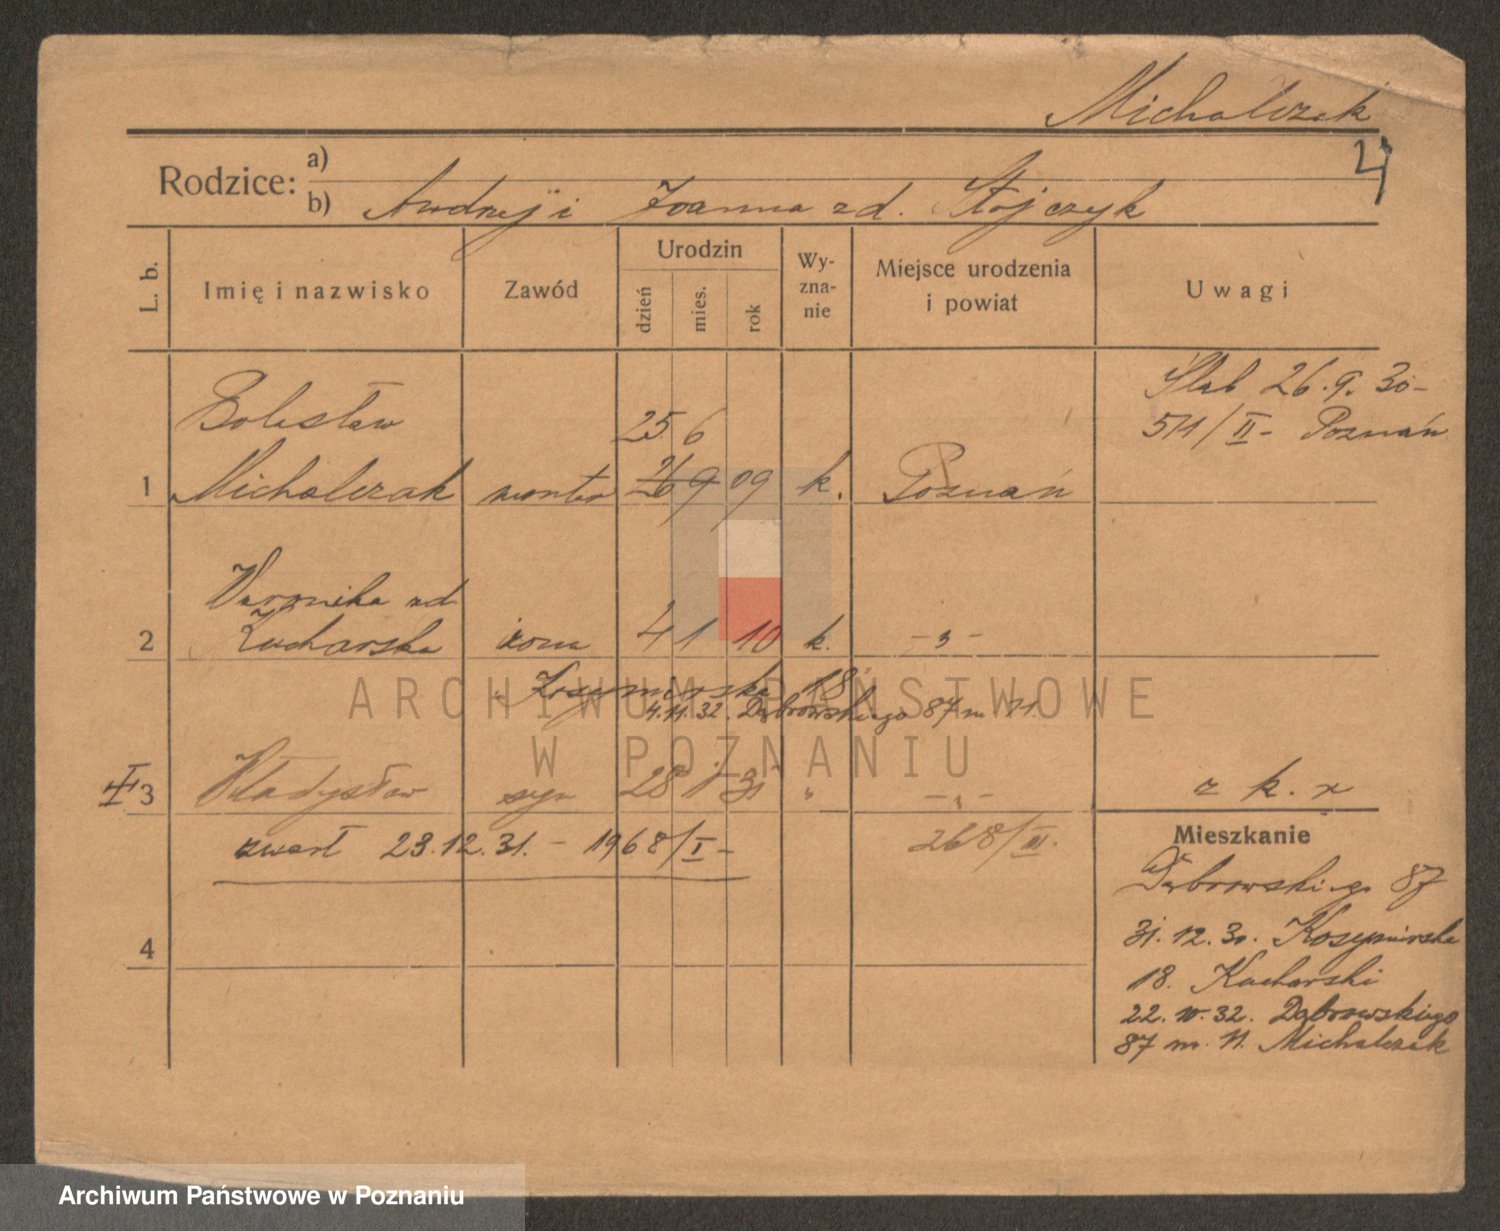 Michalczak
4
Rodzice:
a)
b) Andrzej i Joanna zd. Stójczyk
L. b.
Imię i nazwisko
Zawód
Urodzin
dzień
mies.
rok
Wy-
zna-
nie
Miejsce urodzenia
i powiat
Uwagi
Ślub 26.9.30-
511/II- Poznań
Bolesław
25 6
1 Michalczak monter 26 9 09 k. Poznań
Weronika zd
2 Kucharska żona 4 1 10 k. -"-
Kosynierska 18
4.11.32. Dąbrowskiego 87 m. 11.
ARCHIWUM PAŃSTWOWE
W POZNANIU
3 Władysław syn 28 1 31 " -"-
z k. x
zmarł 23.12.31. - 1968/I - 268/III.
Mieszkanie
Dąbrowskiego 87
31.12.30. Kosynierska
18. Kucharski
22.10.32. Dąbrowskiego
87 m. 11. Michalczak
4
Archiwum Państwowe w Poznaniu